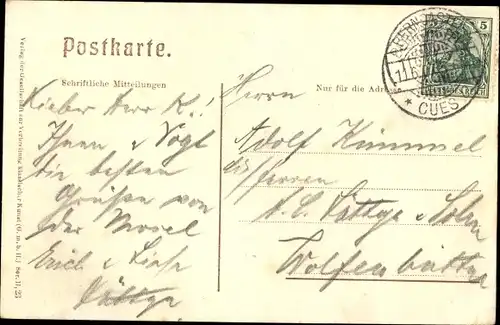 Postkarte.
Schriftliche Mitteilungen
Nur für die Adresse
Verlag der Gesellschaft zur Verbreitung klassischer Kunst (G. m. b. H.) Ser. II, 23
BERNCASTEL
CUES
5
Lieber Herr K.!
Ihnen & Vogt
die besten
Grüße von
der Mosel
Erich &
Herrn
Adolf Kümmel
Herren
Söhne
Wolfenbüttel